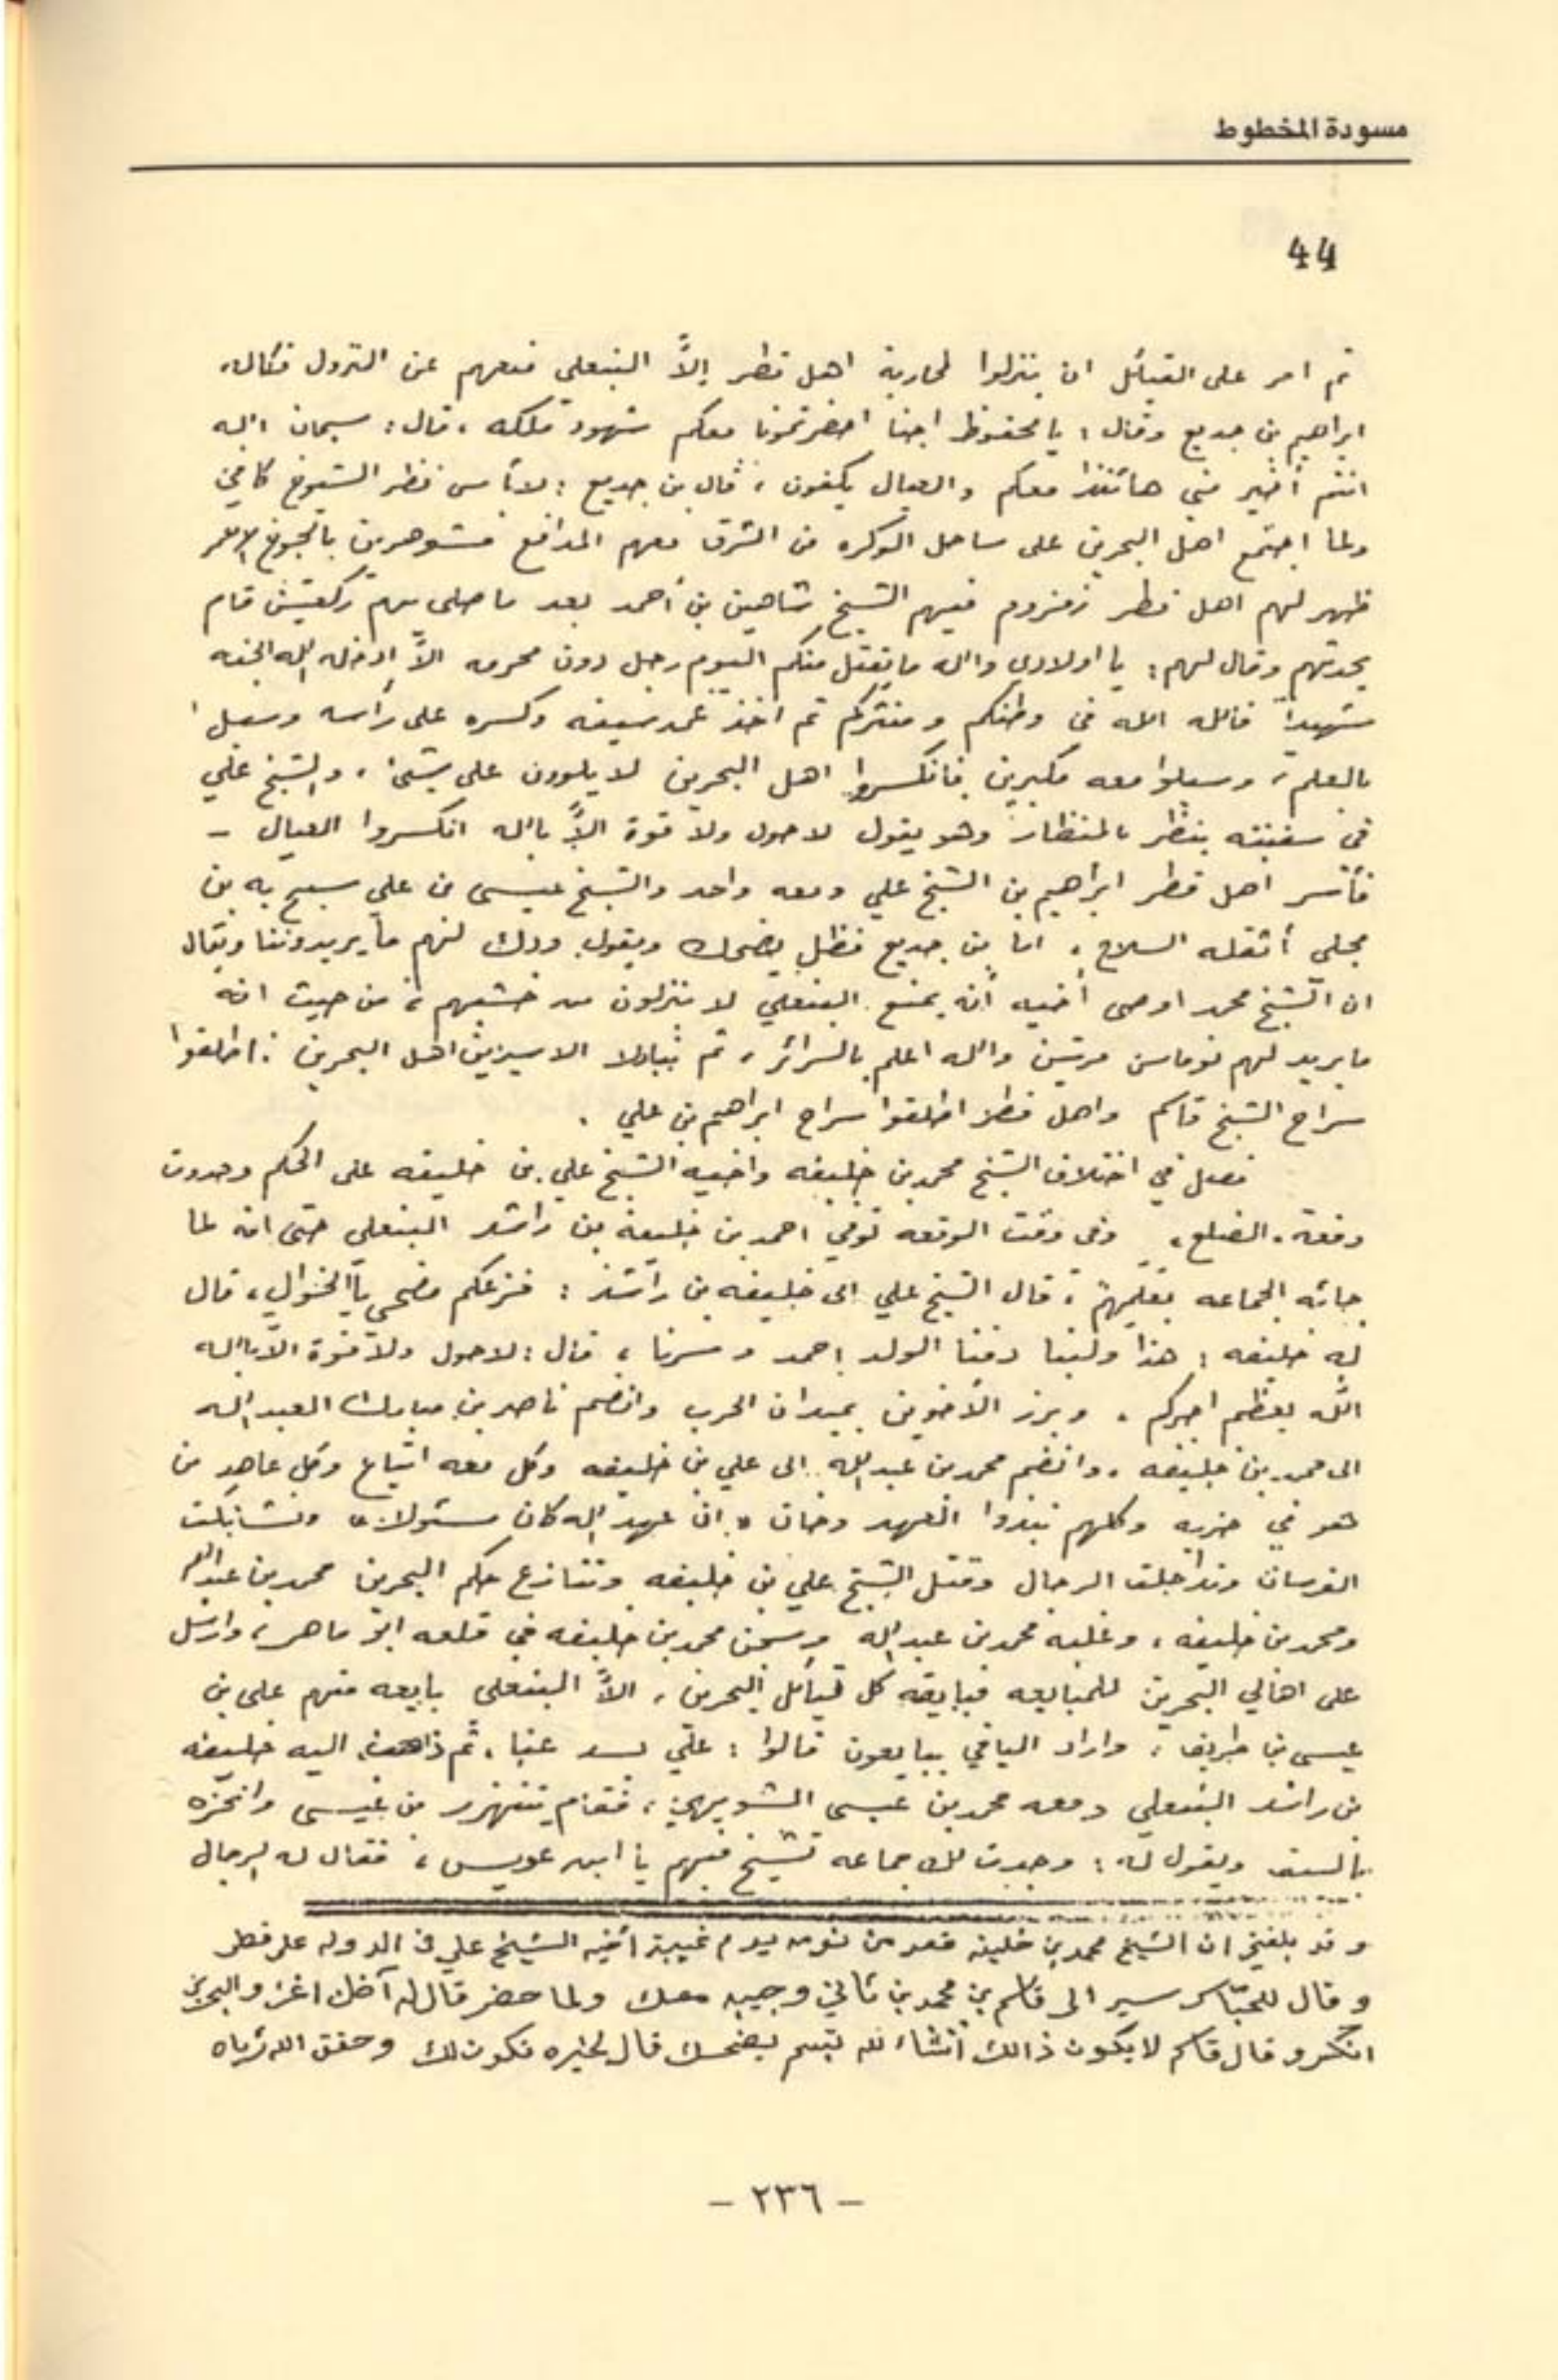 مسودة المخطوط
44
ثم امر على القبائل ان ينزلوا لمحاربة اهل قطر إلاَّ البنعلي منعهم عن النزول فكاله
ابراهيم بن جديع وقال : يا محفوظ احنا احضرتمونا معكم شهود ملكه ، قال : سبحان الله
انتم أخير مني معكم والعيال يكفون ، قال بن جديع : لابأس نظر الشيوخ كافي
ولما اجتمع اهل البحرين على ساحل الوكره من الشرق معهم المدافع بالجوخ الاحمر
ظهر لهم اهل قطر فيهم الشيخ شاهين بن أحمد بعد ما صلى بهم ركعتين قام
يحدثهم وقال لهم : يا اولادي والله ما يقتل منكم اليوم رجل دون محرمه الاَّ ادخله الله الجنه
شهيداً فالله الله في وطنكم و ثم اخذ غمد سيفه وكسره على رأسه
بالعلم ، معه مكبرين فانكسروا اهل البحرين لا يلوون على شئ ، والشيخ علي
في سفينته ينظر بالمنظار وهو يقول لا حول ولا قوة الاَّ بالله انكسروا العيال –
فأسر اهل قطر ابراهيم بن الشيخ علي ومعه واحد والشيخ عيسى بن علي سبح به بن
مجلي أثقله السلاح ، اما بن جديع فظل يضحك ويقول ودك لهم ما يريدوننا ويقال
ان الشيخ محمد اوصى أخيه أنه يمنع البنعلي لا ينزلون من خشبهم ، من حيث انه
ما يريد لهم نوماس مرتين والله اعلم بالسرائر ، ثم تبادلا الاسيرين اهل البحرين : اطلقوا
سراح الشيخ قاسم واهل قطر اطلقوا سراح ابراهيم بن علي .
فصل في اختلاف الشيخ محمد بن خليفه واخيه الشيخ علي بن خليفه على الحكم وحدوث
وقعة الضلع ، وفي وقت الوقعه توفي احمد بن خليفة بن راشد البنعلي حتى انه لما
جائه الجماعه ، قال الشيخ علي الى خليفه بن راشد : فزعكم ضحى يا الخوال ، قال
له خليفه : هذا ولينا دفنا الولد احمد وسرنا ، قال : لا حول ولا قوة الا بالله
الله يعظم اجركم . وبرز الأخوين بميدان الحرب وانضم ناصر بن مبارك العبدالله
الى محمد بن خليفه ، وانضم محمد بن عبدالله الى علي بن خليفه وكل معه اتباع وكل عاهد من
هو في حزبه وكلهم نبذوا العهد وخان « ان عهد الله كان مسئولا » وتشابكت
الفرسان وتداخلت الرجال وقتل الشيخ علي بن خليفه وتنازع حكم البحرين محمد بن عبدالله
ومحمد بن خليفه ، وغلبه محمد بن عبدالله وسجن محمد بن خليفه في قلعه ابو ماهر ، وارسل
على اهالي البحرين للمبايعه فبايعه كل قبائل البحرين ، الاَّ البنعلي بايعه منهم علي بن
عيسى بن طريف ، واراد الباقي يبايعون قالوا : علي يسد عنا ، ثم ذاهب اليه خليفه
بن راشد البنعلي ومعه محمد بن عيسى ، فقام بن عيسى
بالسيف ويقول له : وجدت لك جماعه تشيخ فيهم يا ابن عويس ، فقال له الرجال
و قد بلغني ان الشيخ محمد بن خليفه قعد من نومه يوم غيبة أخيه الشيخ علي في الدوله على قطر
و قال سير الى قاسم بن محمد بن ثاني وجيبه معك ولما حضر قال له والبحرين
انكسرو قال قاسم لا يكون ذالك أنشاء لله تبسم ليضحك قال لخيره تكون لك وحقق الله رؤياه
– ٢٣٦ –